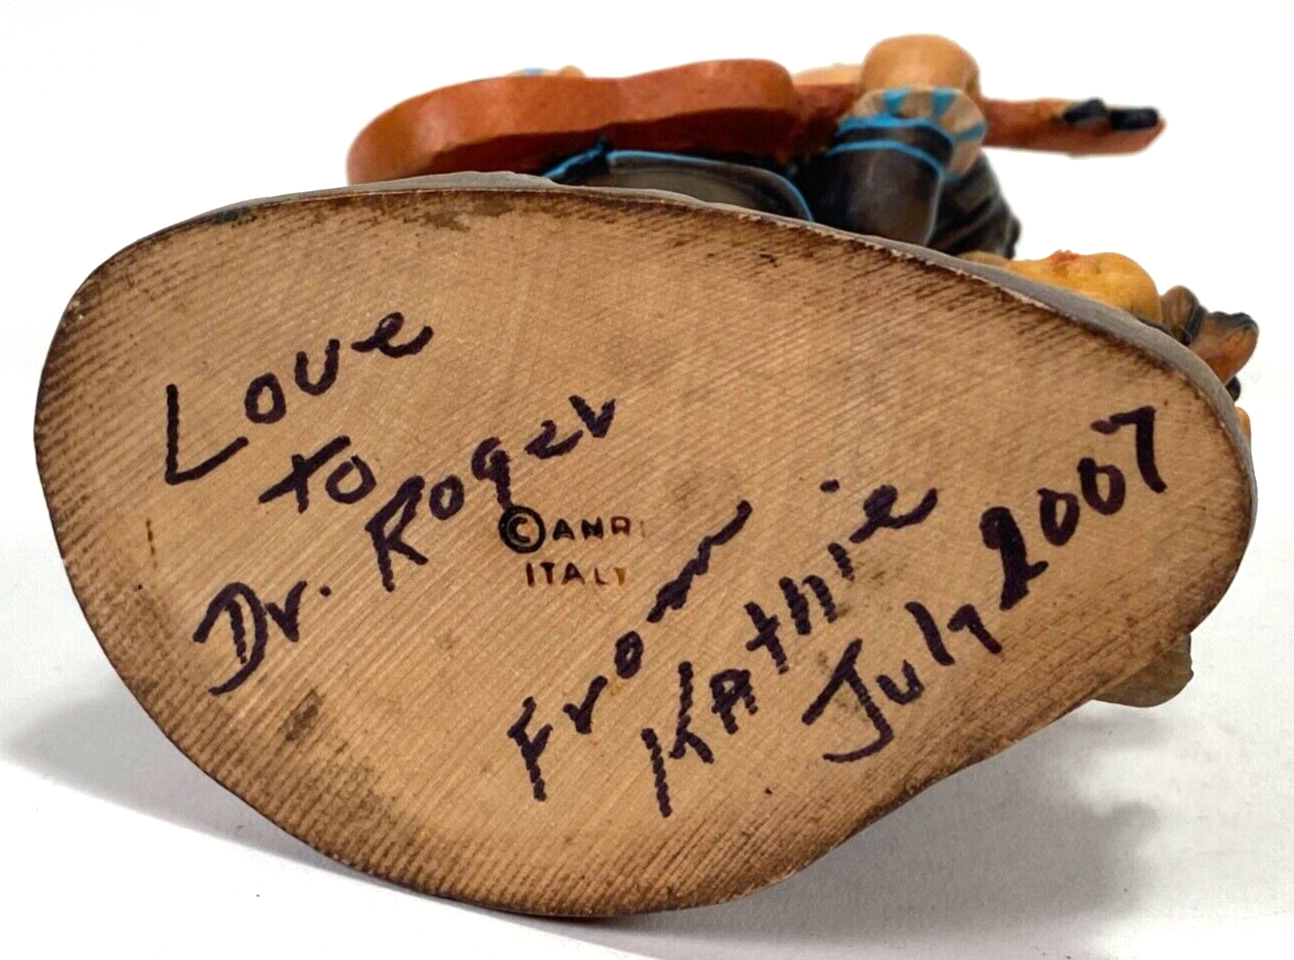 Love
to
Dr. Roger
© ANRI
ITALY
From
Kathie
July 2007